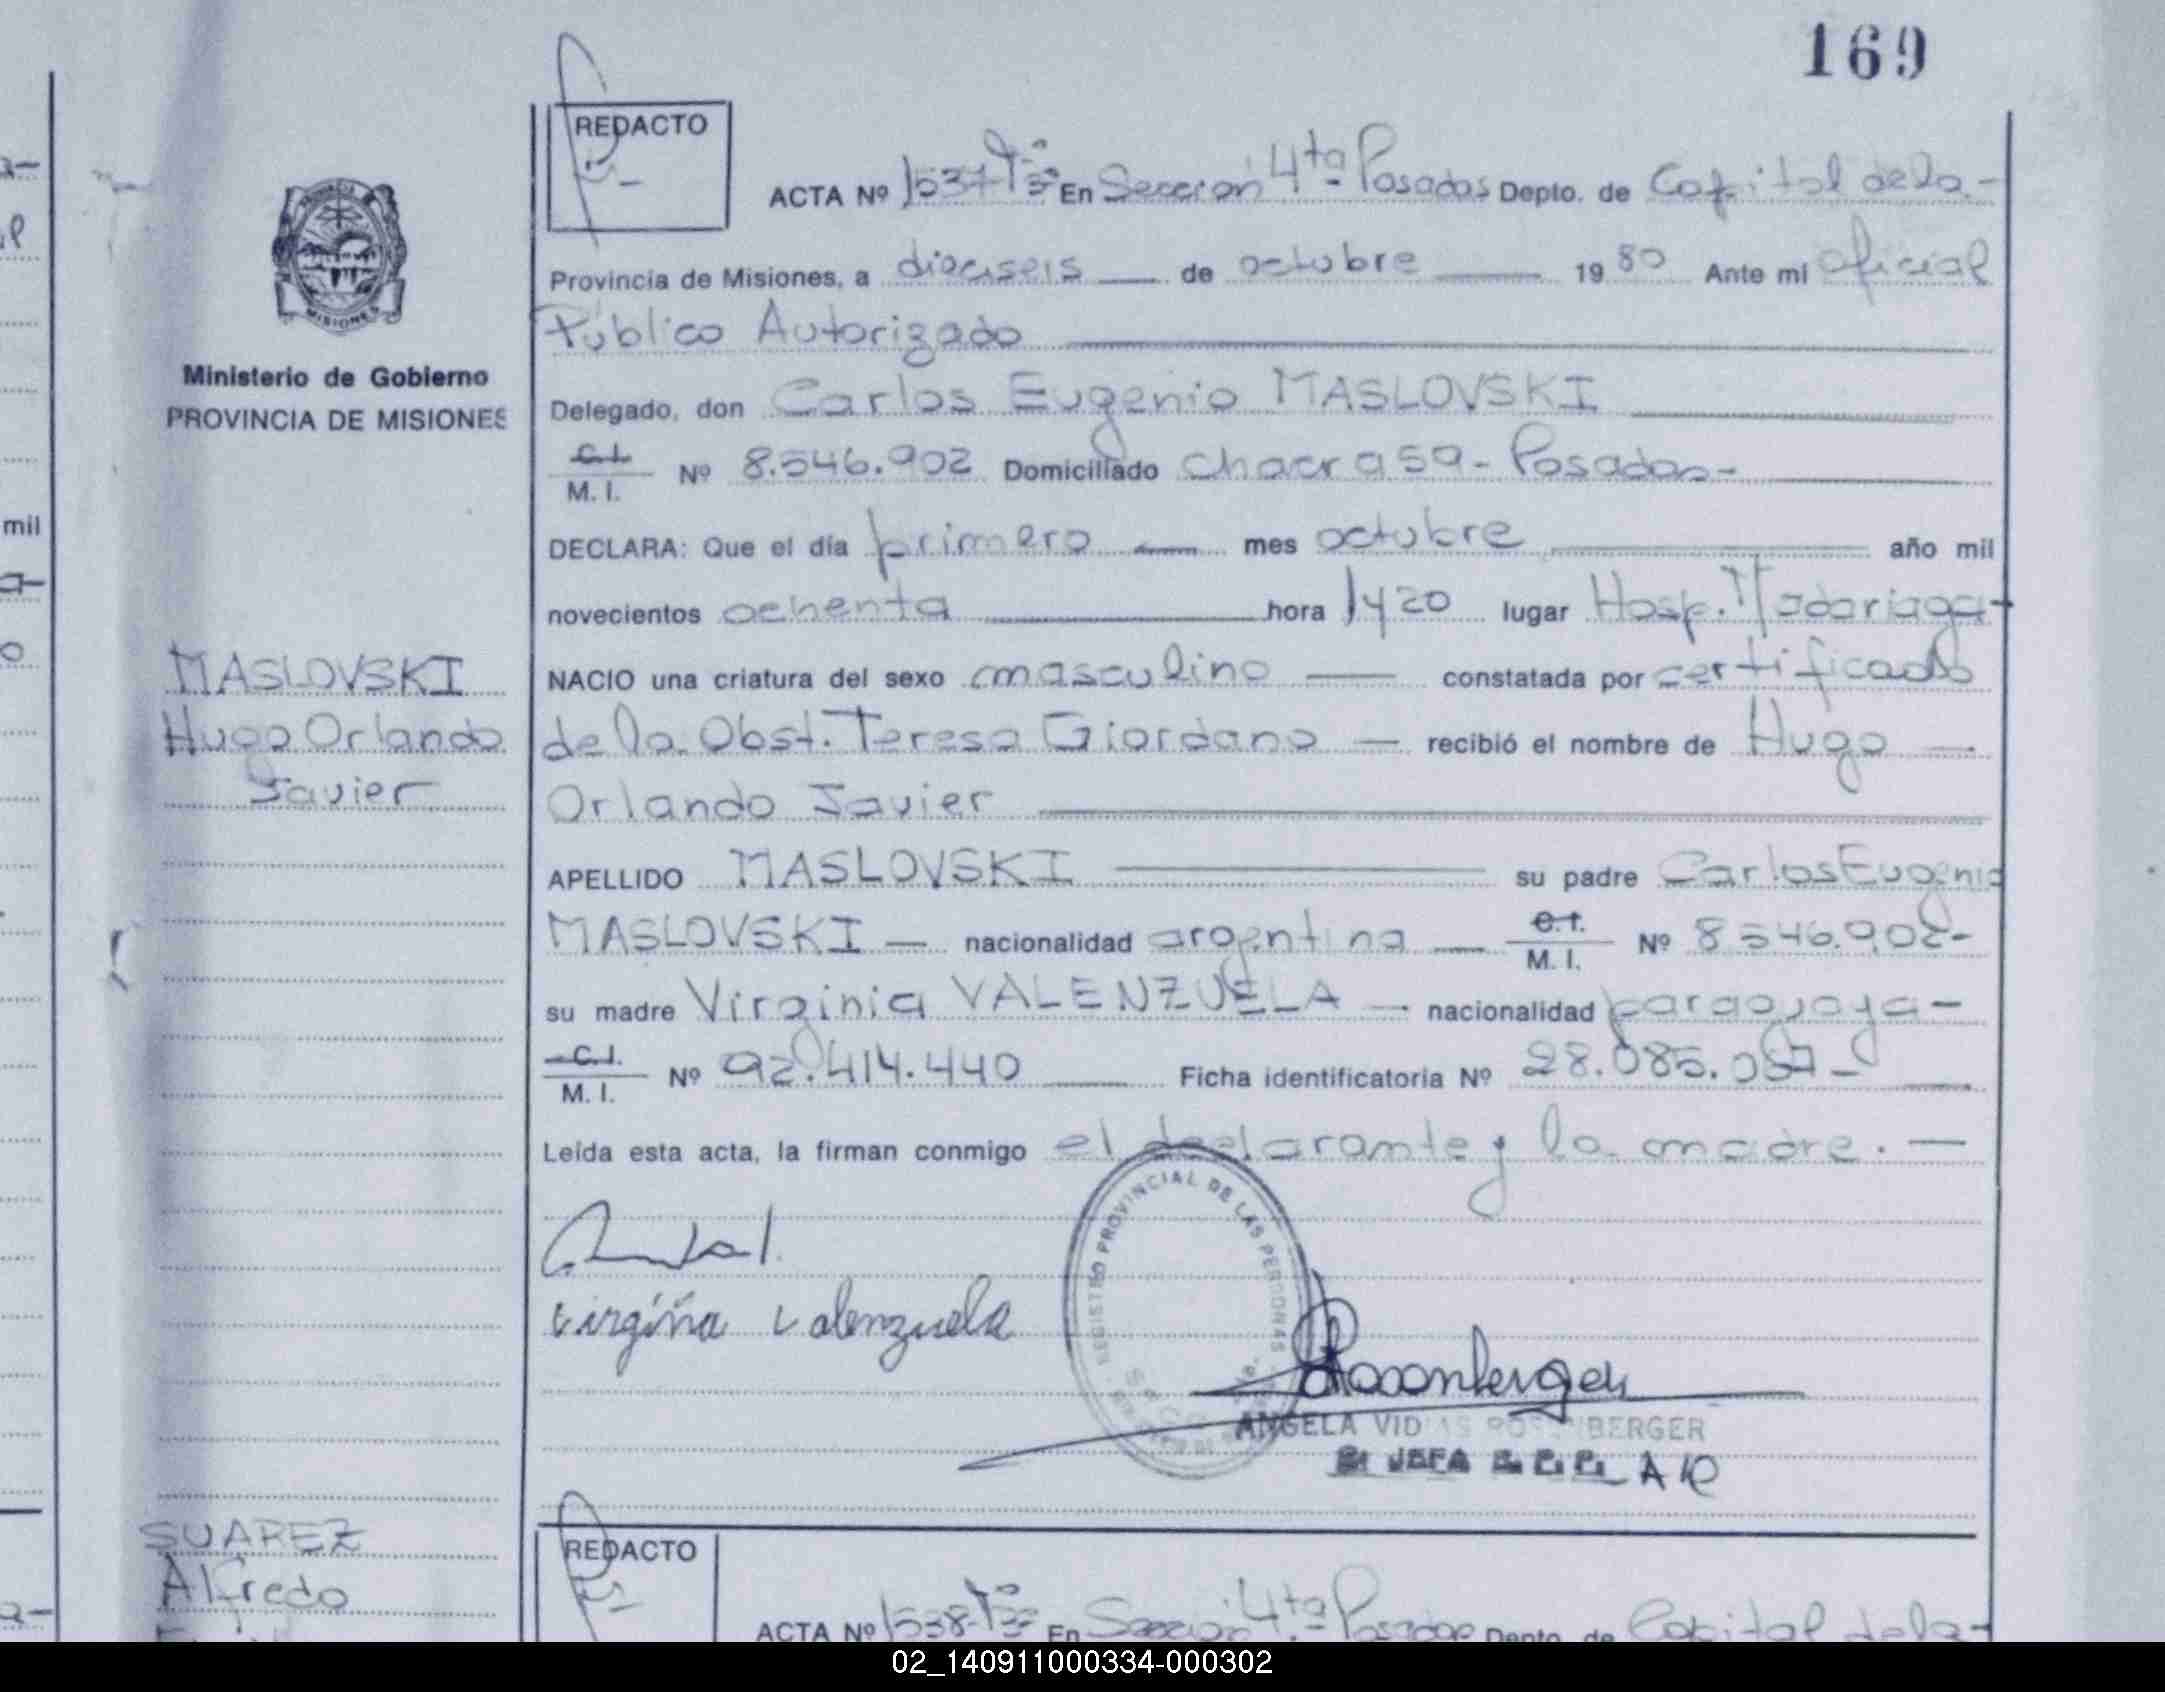 169
REDACTO
ACTA Nº 1537 Tº 3º En Sección 4ta Posadas Depto. de Capital de la -
Provincia de Misiones, a dieciseis de octubre 19 80 Ante mi oficial
Público Autorizado
Delegado, don Carlos Eugenio MASLOVSKI
C.I. M. I. Nº 8.546.902 Domiciliado chacra 59 - Posadas -
DECLARA: Que el día primero mes octubre año mil
novecientos ochenta hora 1420 lugar Hosp. Madariaga -
NACIO una criatura del sexo masculino constatada por certificado
de la Obst. Teresa Giordano recibió el nombre de Hugo
Orlando Javier
APELLIDO MASLOVSKI su padre Carlos Eugenio
MASLOVSKI nacionalidad argentina C.I. M. I. Nº 8.546.902 -
su madre Virginia VALENZUELA nacionalidad paraguaya -
C.I. M. I. Nº 92.414.440 Ficha identificatoria Nº 28.085.
Leída esta acta, la firman conmigo el declarante y la madre. -
Virginia Valenzuela
REGISTRO PROVINCIAL DE LAS PERSONAS
Rosenberger
ANGELA VIDIAS ROSENBERGER
JEFA
MISIONES
Ministerio de Gobierno
PROVINCIA DE MISIONES
MASLOVSKI
Hugo Orlando
Javier
SUAREZ
Alfredo
REDACTO
ACTA Nº 1538 Tº 3º En Sección 4ta Posadas Depto. de Capital de la -
mil
02_140911000334-000302